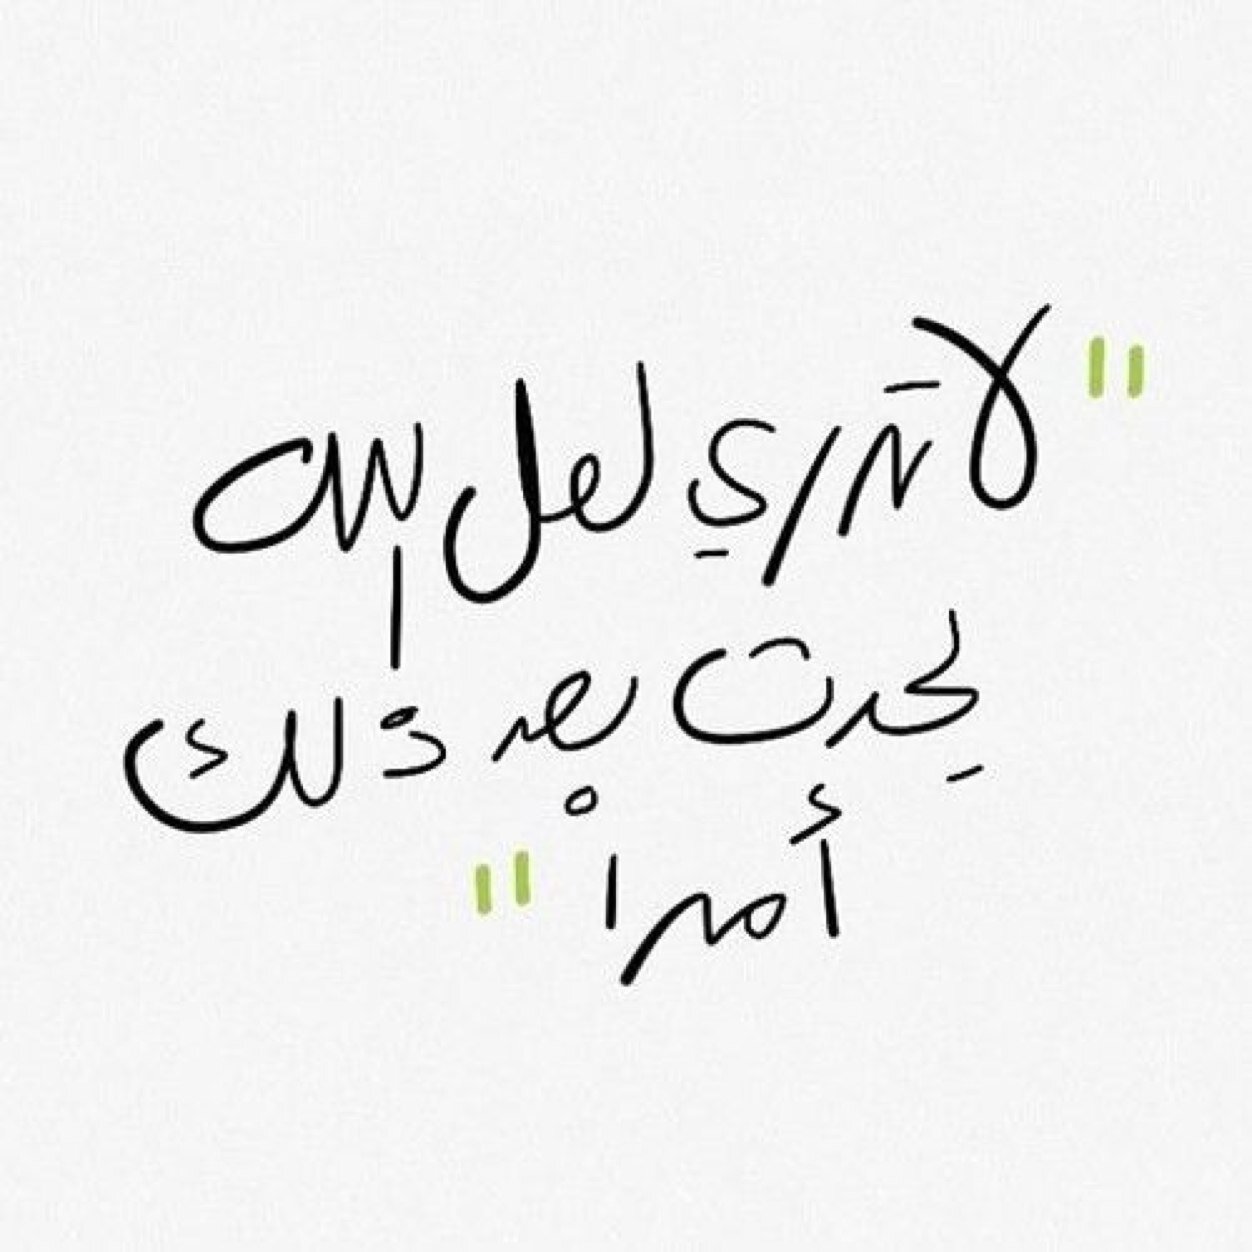 "لا تدري لعل الله
يحدث بعد ذلك
أمرا"